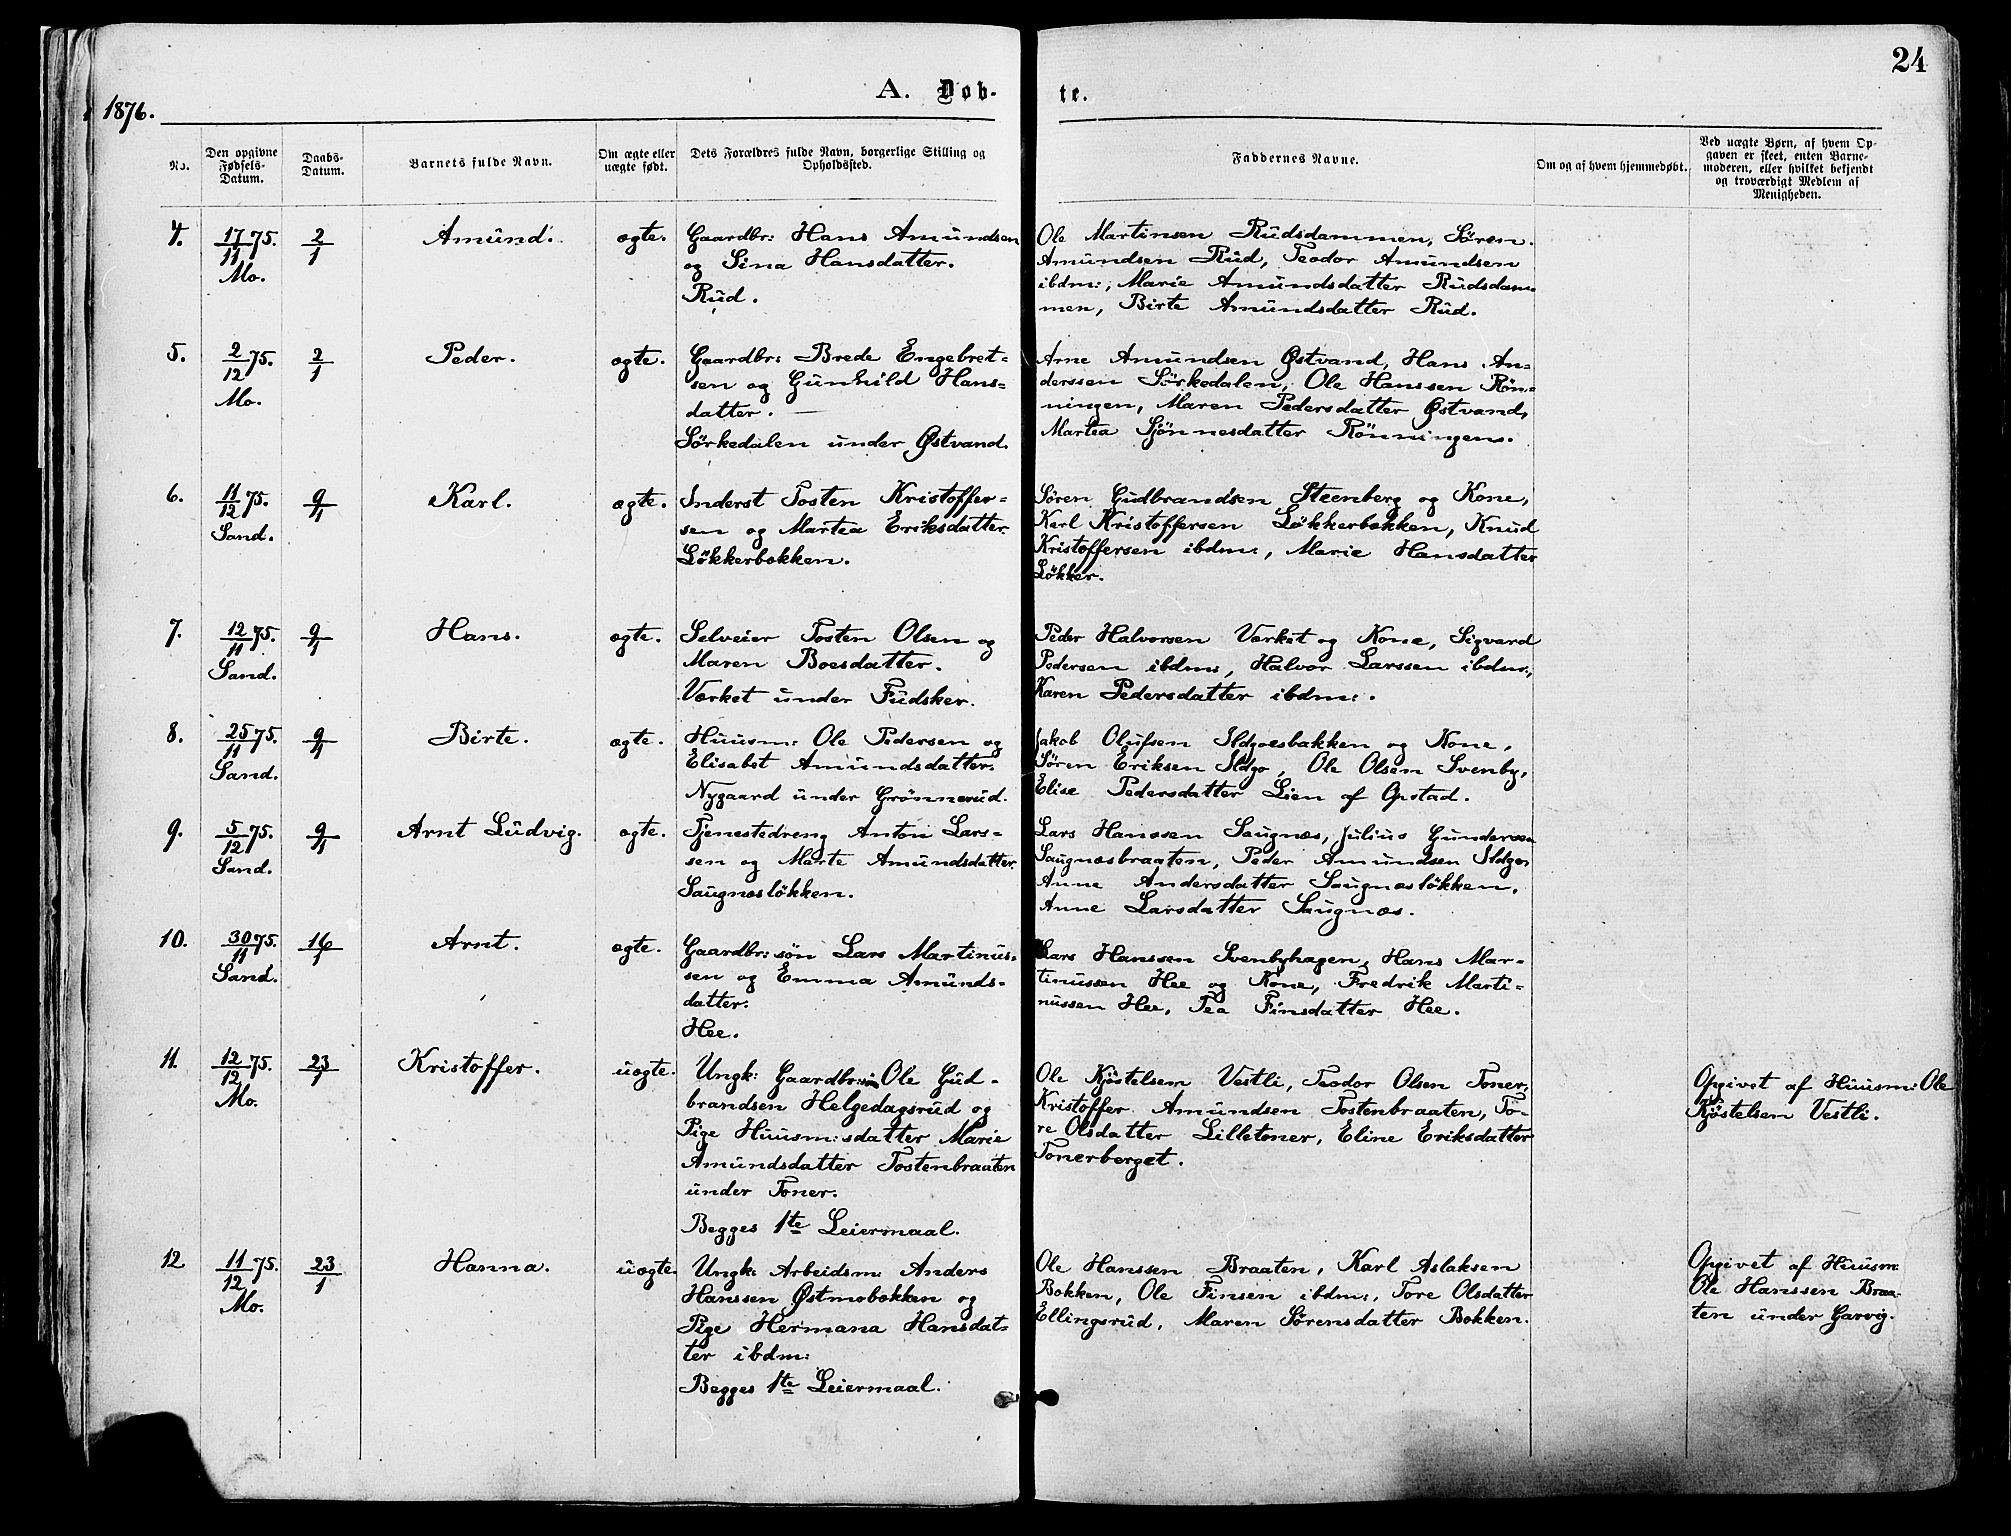 24
A. Døb-
te.
1876.
No.
Den opgivne Fødsels-Datum.
Daabs-Datum.
Barnets fulde Navn.
Om ægte eller uægte født.
Dets Forældres fulde Navn, borgerlige Stilling og Opholdssted.
Faddernes Navne.
Om og af hvem hjemmedøbt.
Ved uægte Børn, af hvem Op-
gaven er skeet, enten Barne-
moderen, eller hvilket bekjendt
og troværdigt Medlem af
Menigheden.
4.
17/11 75.
Mo.
2/1
Amund.
ægte.
Gaardbr: Hans Amundsen
og Sina Hansdatter.
Rud.
Ole Martinsen Rudsdammen, Søren
Amundsen Rud, Teodor Amundsen
ibdm:, Marie Amundsdatter Rudsdam-
men, Birte Amundsdatter Rud.
5.
2/12 75.
Mo.
2/1
Peder.
ægte.
Gaardbr: Brede Engebret-
sen og Gunhild Hans-
datter. —
Sörkedalen under Østvand.
Arne Amundsen Østvand, Hans An-
derssen Sörkedalen, Ole Hanssen Rön-
ningen, Maren Pedersdatter Østvand,
Martea Sjönnesdatter Rönningens.
6.
11/12 75.
Sand.
9/1
Karl.
ægte.
Inderst Tosten Kristoffer-
sen og Martea Eriksdatter.
Løkkerbækken.
Søren Gudbrandsen Steenberg og Kone,
Karl Kristoffersen Løkkerbækken, Knud
Kristoffersen ibdm:, Marie Hansdatter
Løkker.
7.
12/11 75.
Sand.
9/1
Hans.
ægte.
Selveier Tosten Olsen og
Maren Boesdatter.
Værket under Fudsker.
Peder Halvorsen Værket og Kone, Sigvard
Pedersen ibdm:, Halvor Larssen ibdm:,
Karen Pedersdatter ibdm:.
8.
25/11 75.
Sand.
9/1
Birte.
ægte.
Huusm: Ole Pedersen og
Elisabet Amundsdatter.
Nygaard under Grönnerud.
Jakob Olufsen Ildgoesbakken og Kone,
Søren Eriksen Ildgo, Ole Olsen Svenby,
Elise Pedersdatter Lien af Opstad.
9.
5/12 75.
Sand.
9/1
Arnt Ludvig.
ægte.
Tjenestedreng Anton Lars-
sen og Marte Amundsdatter.
Saugnæsløkken.
Lars Hanssen Saugnæs, Julius Gundersen
Saugnæsbraaten, Peder Amundsen Ildgo,
Anne Andersdatter Saugnæsløkken,
Anne Larsdatter Saugnæs.
10.
30/11 75.
Sand.
16/1
Arnt.
ægte.
Gaardbr: søn Lars Martinus-
sen og Emma Amunds-
datter.
Hee.
Lars Hanssen Svenbyhagen, Hans Mar-
tinussen Hee og Kone, Fredrik Marti-
nussen Hee, Tea Finsdatter Hee.
11.
12/12 75.
Mo.
23/1
Kristoffer.
uægte.
Ungk: Gaardbr: Ole Gud-
brandsen Helgedagsrud og
Pige Huusm:sdatter Marie
Amundsdatter Tostenbraaten
under Toner.
Begges 1te Leiermaal.
Ole Kjöstelsen Vestli, Teodor Olsen Toner,
Kristoffer Amundsen Tostenbraaten, To-
re Olsdatter Lilletoner, Eline Eriksdatter
Tonerberget.
Opgivet af Huusm: Ole
Kjöstelsen Vestli.
12
11/12 75.
Mo.
23/1
Hanna.
uægte.
Ungk: Arbeidsm: Anders
Hanssen Østmobækken og
Pige Hermana Hansdat-
ter ibdm:
Begges 1te Leiermaal.
Ole Hanssen Braaten, Karl Aslaksen
Bækken, Ole Finsen ibdm:, Tore Olsdatter
Ellingsrud, Maren Sørensdatter Bækken.
Opgivet af Huusm:
Ole Hanssen Braa-
ten under Garvig.